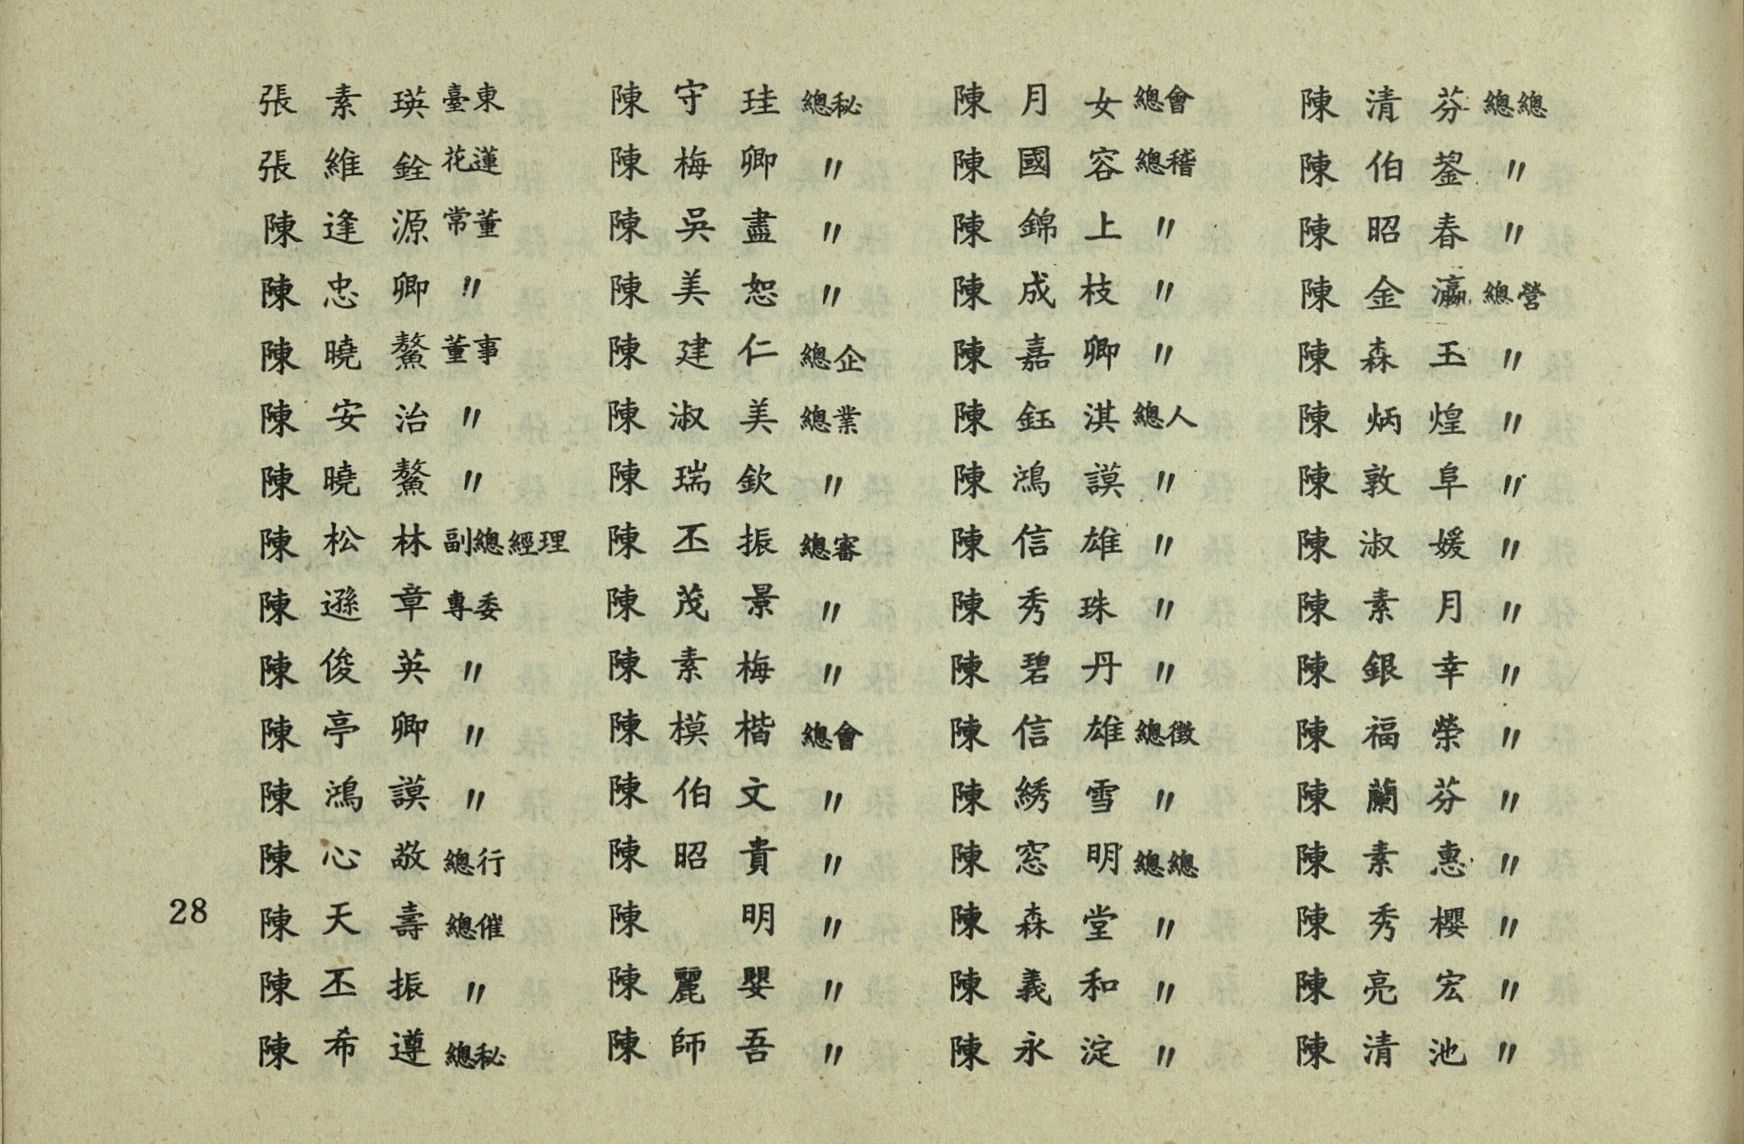 張素瑛臺東
張維銓花蓮
陳逢源常董
陳忠卿〃
陳曉鰲董事
陳安治〃
陳曉鰲〃
陳松林副總經理
陳遜章專委
陳俊英〃
陳亭卿〃
陳鴻謨〃
陳心敬總行
陳天壽總催
陳丕振〃
陳希遵總秘
陳守珪總秘
陳梅卿〃
陳吳盡〃
陳美恕〃
陳建仁總企
陳淑美總業
陳瑞欽〃
陳丕振總審
陳茂景〃
陳素梅〃
陳模楷總會
陳伯文〃
陳昭貴〃
陳明〃
陳麗嬰〃
陳師吾〃
陳月女總會
陳國容總稽
陳錦上〃
陳成枝〃
陳嘉卿〃
陳鈺淇總人
陳鴻謨〃
陳信雄〃
陳秀珠〃
陳碧丹〃
陳信雄總徵
陳綉雪〃
陳窓明總總
陳森堂〃
陳義和〃
陳永淀〃
陳清芬總總
陳伯鋆〃
陳昭春〃
陳金瀛總營
陳森玉〃
陳炳煌〃
陳敦阜〃
陳淑媛〃
陳素月〃
陳銀幸〃
陳福榮〃
陳蘭芬〃
陳素惠〃
陳秀櫻〃
陳亮宏〃
陳清池〃
28